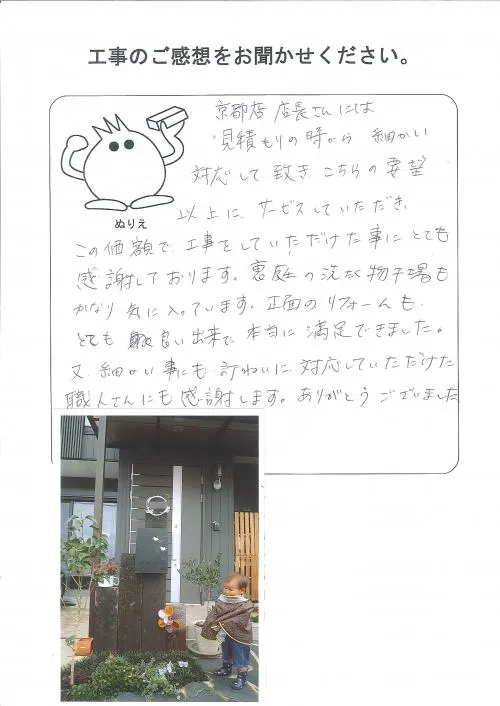 工事のご感想をお聞かせください。
京都店 店長さんには
見積もりの時から 細かい
対応して致き こちらの要望
以上に、サービスしていただき、
ぬりえ
この価額で、工事をしていただけた事に とても
感謝しております。裏庭の洗たく物干場も
かなり 気に入っています。正面のリフォームも、
とても 良い出来で 本当に 満足できました。
又、細かい事にも 対応していただけた
職人さんにも 感謝します。ありがとうございました